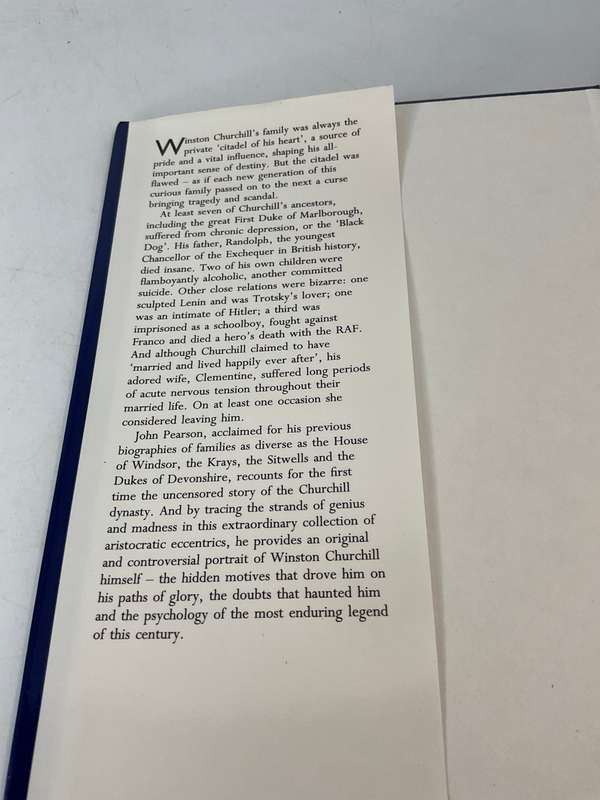 Winston Churchill's family was always the
private 'citadel of his heart', a source of
pride and a vital influence, shaping his all-
important sense of destiny. But the citadel was
flawed – as if each new generation of this
curious family passed on to the next a curse
bringing tragedy and scandal.
At least seven of Churchill's ancestors,
including the great First Duke of Marlborough,
suffered from chronic depression, or the 'Black
Dog'. His father, Randolph, the youngest
Chancellor of the Exchequer in British history,
died insane. Two of his own children were
flamboyantly alcoholic, another committed
suicide. Other close relations were bizarre: one
sculpted Lenin and was Trotsky's lover; one
was an intimate of Hitler; a third was
imprisoned as a schoolboy, fought against
Franco and died a hero's death with the RAF.
And although Churchill claimed to have
'married and lived happily ever after', his
adored wife, Clementine, suffered long periods
of acute nervous tension throughout their
married life. On at least one occasion she
considered leaving him.
John Pearson, acclaimed for his previous
biographies of families as diverse as the House
of Windsor, the Krays, the Sitwells and the
Dukes of Devonshire, recounts for the first
time the uncensored story of the Churchill
dynasty. And by tracing the strands of genius
and madness in this extraordinary collection of
aristocratic eccentrics, he provides an original
and controversial portrait of Winston Churchill
himself – the hidden motives that drove him on
his paths of glory, the doubts that haunted him
and the psychology of the most enduring legend
of this century.